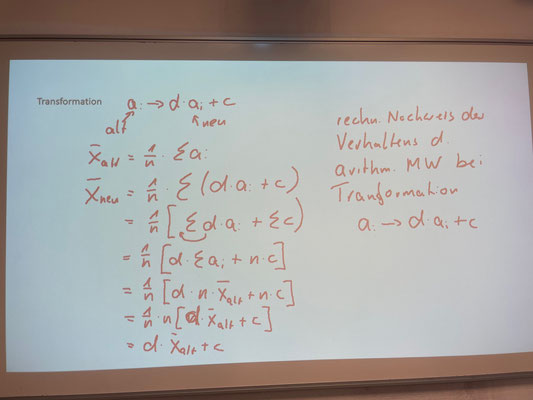 Transformation aᵢ → d·aᵢ + c
alt neu
x̄alt = 1/n · Σ aᵢ
x̄neu = 1/n · Σ (d·aᵢ + c)
= 1/n [Σ d·aᵢ + Σ c)
= 1/n [d·Σ aᵢ + n·c]
= 1/n [d·n·x̄alt + n·c]
= 1/n · n [d·x̄alt + c]
= d·x̄alt + c
rechn. Nachweis des
Verhaltens d.
arithm. MW bei
Tranformation
aᵢ → d·aᵢ + c